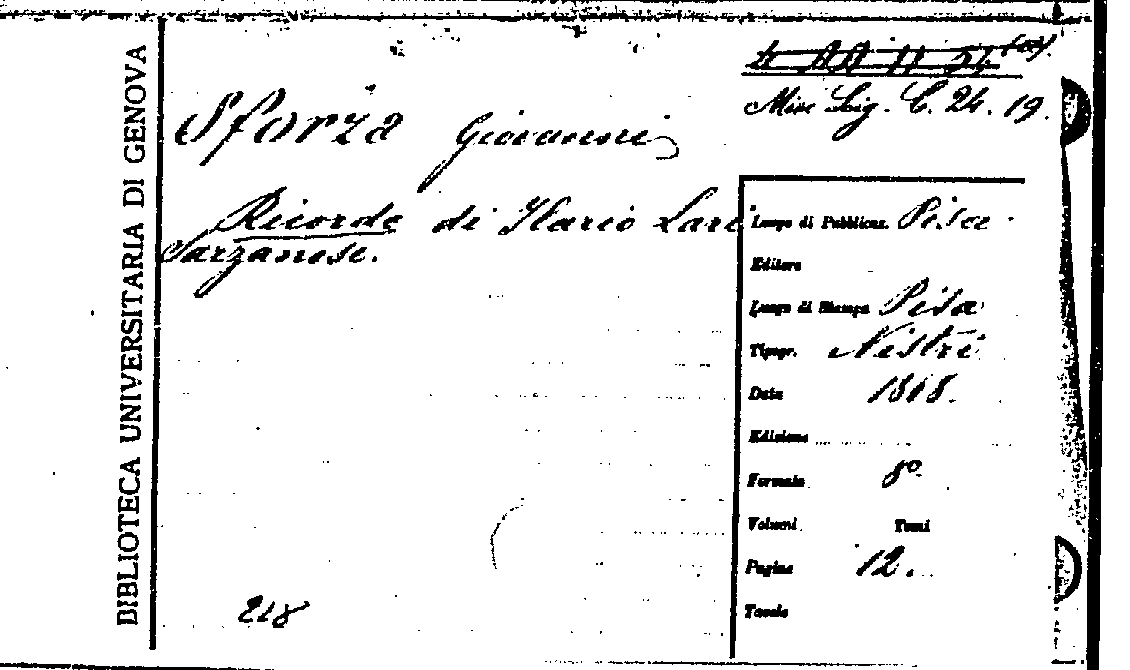 BIBLIOTECA UNIVERSITARIA DI GENOVA
Misc Lig. C. 24. 19.
Sforza Giovanni
Ricordo di Ilario Lari
Sarzanese.
Luogo di Pubblicaz. Pisa
Editore
Luogo di Stampa Pisa
Tipogr. Nistri
Data 1868.
Edizione
Formato 8º
Volumi Tomi
Pagine 12.
Tavole
218